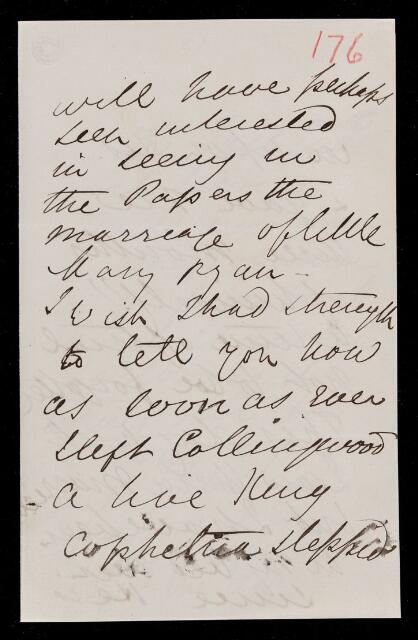 176
will have perhaps
been interested
in seeing in
the Papers the
marriage of little
Mary Ryan –
I wish I had strength
to tell you how
as soon as ever
I left Collingwood
a live King
Cophetua stepped